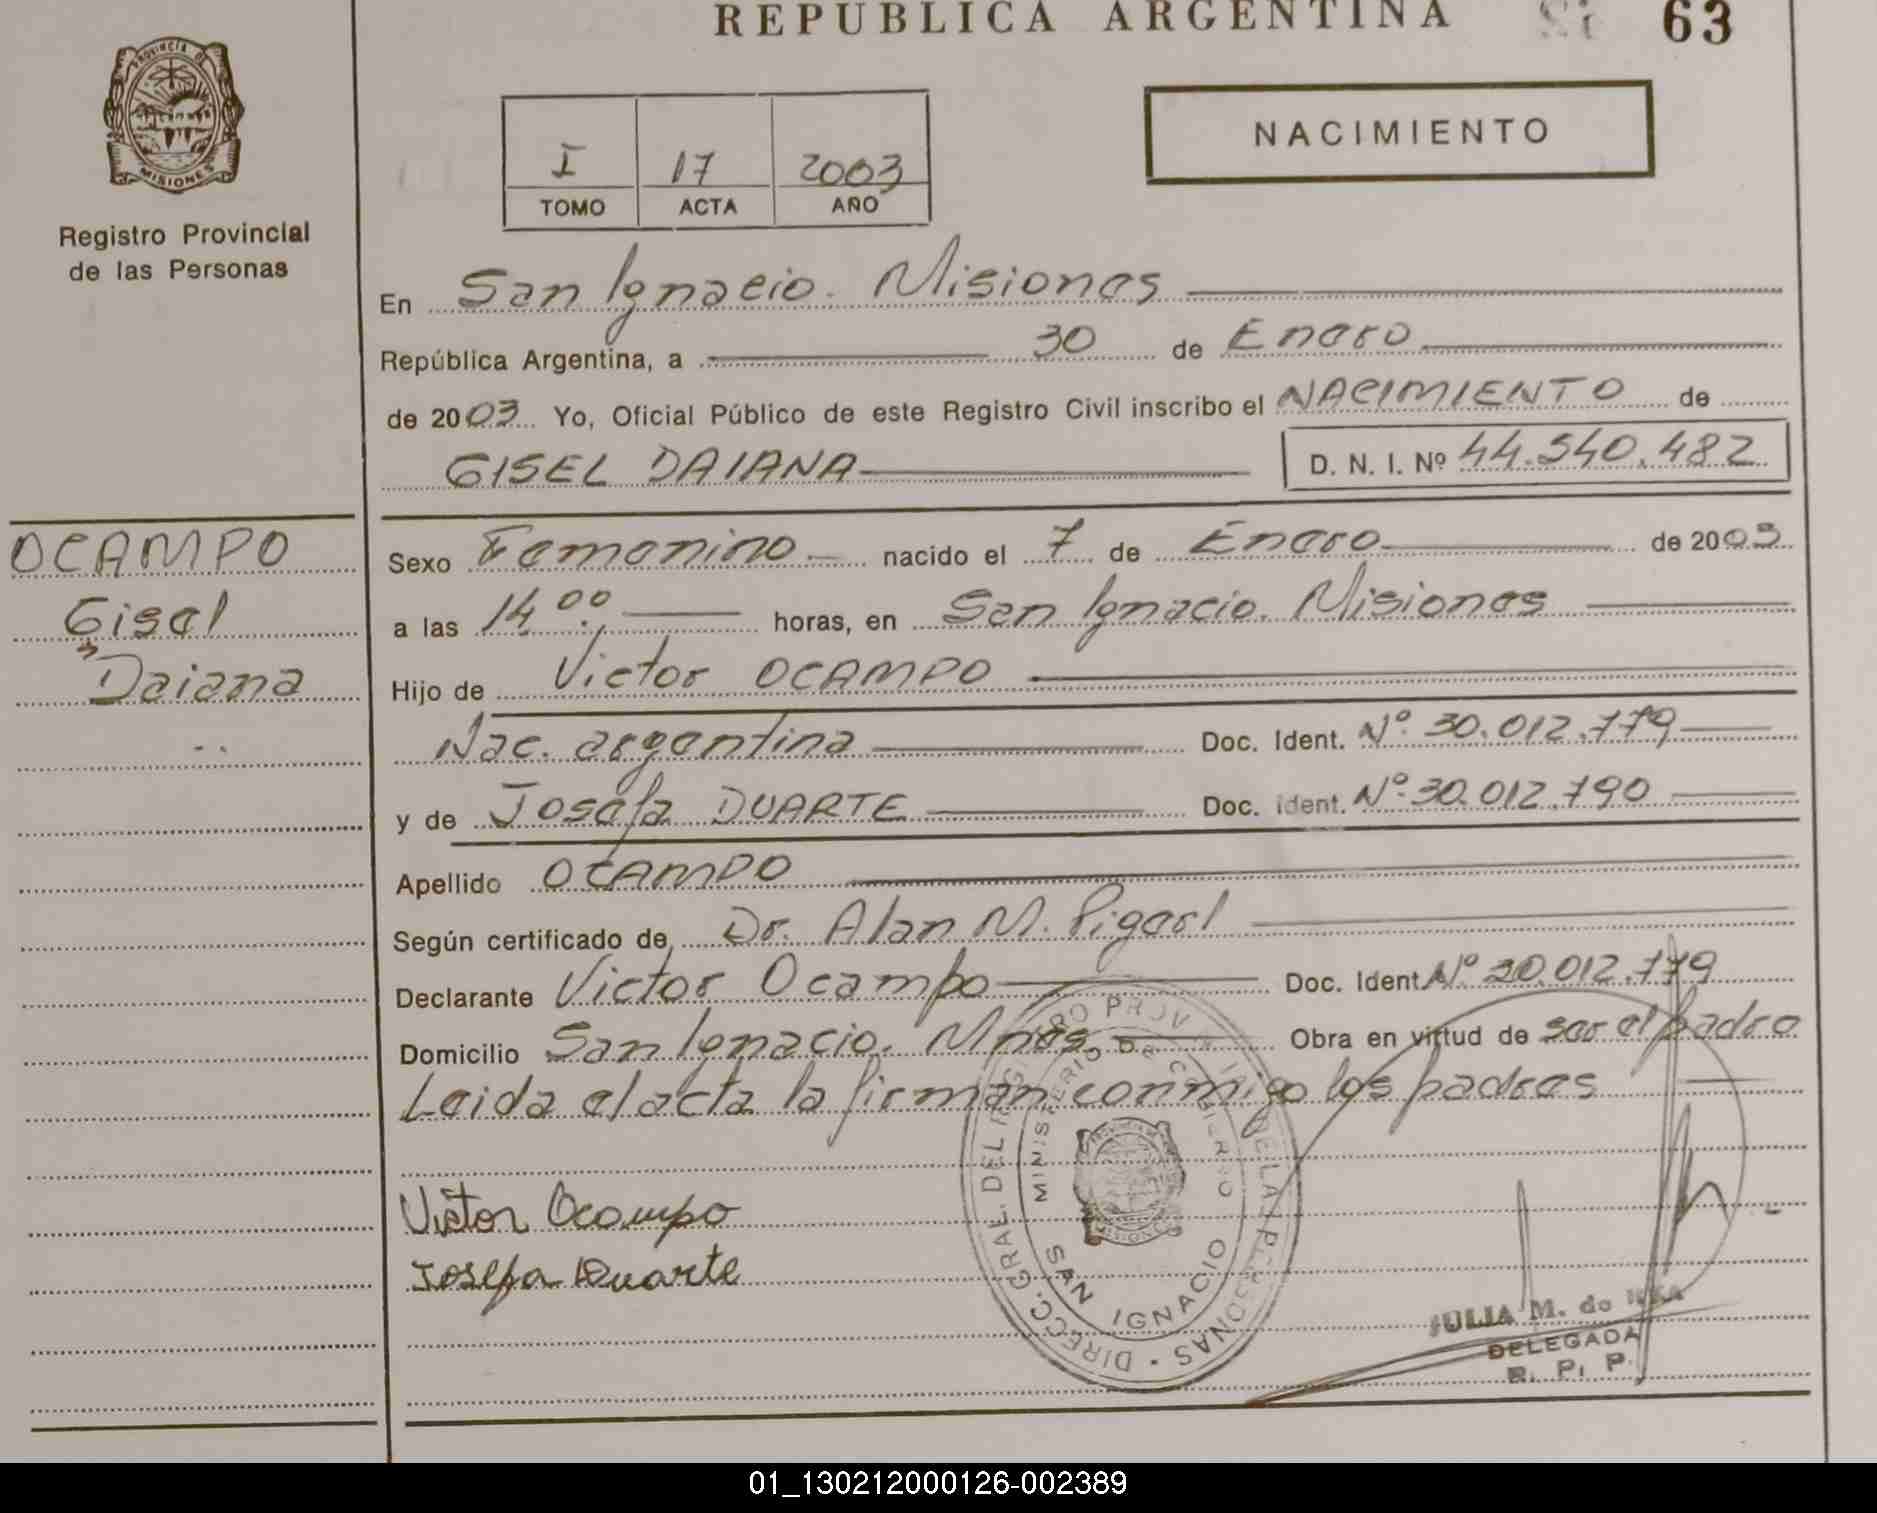 REPUBLICA ARGENTINA 63
PROVINCIA DE
MISIONES
Registro Provincial
de las Personas
I 17 2003
TOMO ACTA AÑO
NACIMIENTO
En San Ignacio. Misiones
República Argentina, a 30 de Enero
de 2003 Yo, Oficial Público de este Registro Civil inscribo el NACIMIENTO de
GISEL DAIANA D. N. I. Nº 44.540.482
OCAMPO
Gisel
Daiana
Sexo Femenino nacido el 7 de Enero de 2003
a las 14.00 horas, en San Ignacio. Misiones
Hijo de Victor OCAMPO
Nac. argentina Doc. Ident. Nº 30.012.779
y de Josefa DUARTE Doc. ident. Nº 30.012.790
Apellido OCAMPO
Según certificado de Dr. Alan M.
Declarante Victor Ocampo Doc. Ident Nº 30.012.779
Domicilio San Ignacio. Mnes. Obra en virtud de ser el padre
Leida el acta la firman conmigo los padres
Victor Ocampo
Josefa Duarte
DIRECC. GRAL. DEL REGISTRO PROV. DE LAS PERSONAS
MINISTERIO DE GOBIERNO
SAN IGNACIO
JULIA M. de
DELEGADA
R. P. P.
01_130212000126-002389